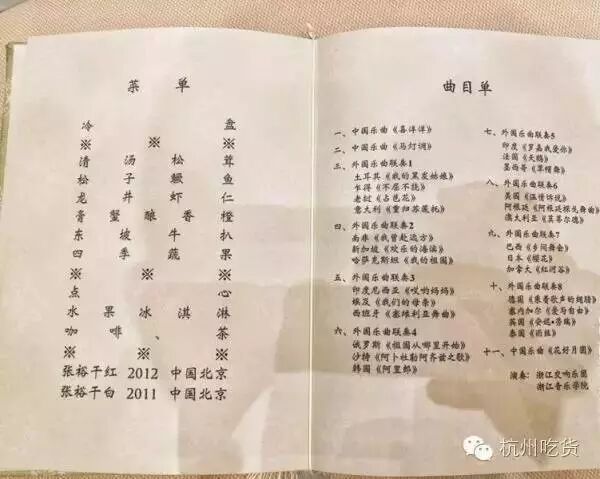 菜 单
冷 盘
※
清 汤 松 茸
松 子 鳜 鱼
龙 井 虾 仁
膏 蟹 酿 香 橙
东 坡 牛 扒
四 季 蔬 果
※ ※ ※
点 心
水 果 冰 淇 淋
咖 啡、 茶
※ ※ ※
张裕干红 2012 中国北京
张裕干白 2011 中国北京
曲目单
一、中国乐曲《喜洋洋》
二、中国乐曲《马灯调》
三、外国乐曲联奏1
土耳其《我的黑发姑娘》
乍得《不屈不挠》
老挝《占芭花》
意大利《重归苏莲托》
四、外国乐曲联奏2
南非《我曾赴远方》
新加坡《欢乐的海滨》
哈萨克斯坦《我的祖国》
五、外国乐曲联奏3
印度尼西亚《哎哟妈妈》
埃及《我们的母亲》
西班牙《塞维利亚舞曲》
六、外国乐曲联奏4
俄罗斯《祖国从哪里开始》
沙特《阿卜杜勒阿齐兹之歌》
韩国《阿里郎》
七、外国乐曲联奏5
印度《罗嘉我爱你》
法国《天鹅》
墨西哥《草帽舞》
八、外国乐曲联奏6
美国《温情诉说》
阿根廷《阿根廷探戈舞曲》
澳大利亚《莫蒂尔德》
九、外国乐曲联奏7
巴西《乡间舞会》
日本《樱花》
加拿大《红河谷》
十、外国乐曲联奏8
德国《乘着歌声的翅膀》
塞内加尔《爱与自由》
英国《安妮•劳瑞》
泰国《雨丝》
十一、中国乐曲《花好月圆》
演奏：浙江交响乐团
浙江音乐学院
杭州吃货